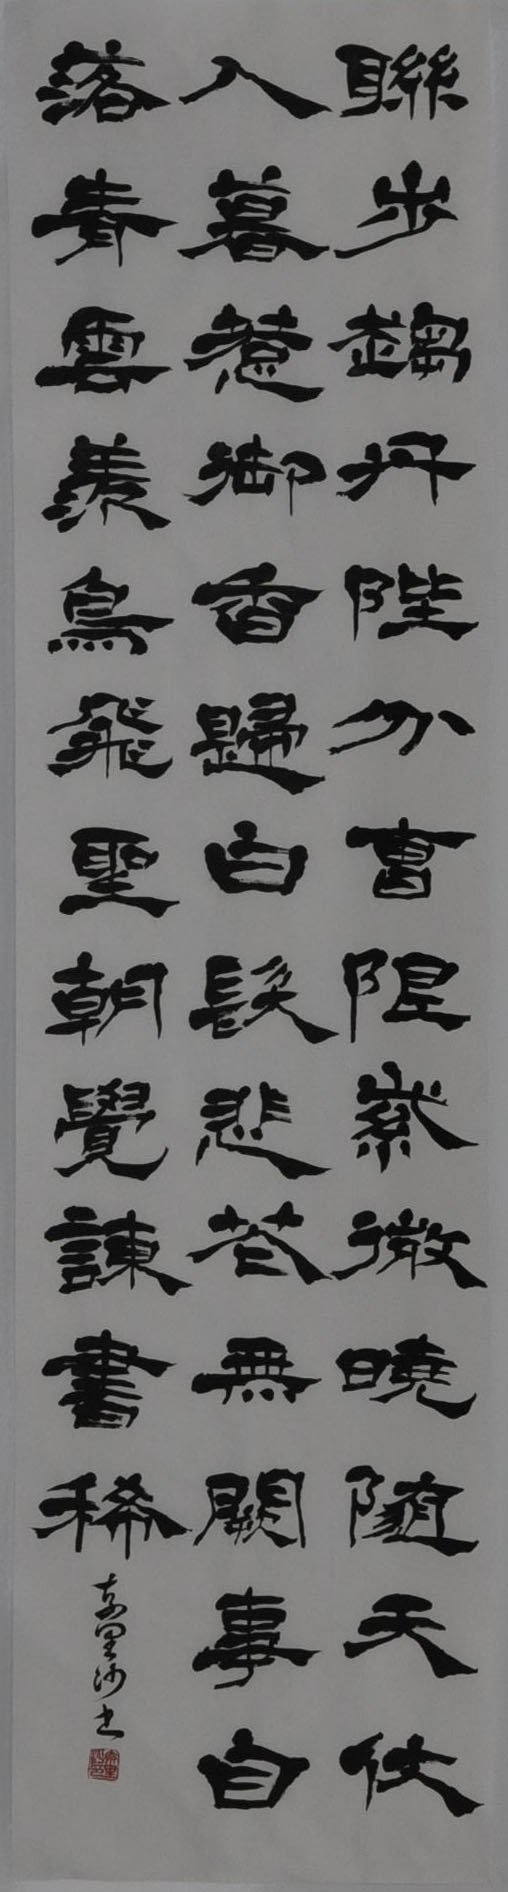 聯步趨丹陛分曹限紫微曉隨天仗
入暮惹御香歸白髮悲花無闕事自
落青雲羨鳥飛聖朝覺諫書稀
里沙書